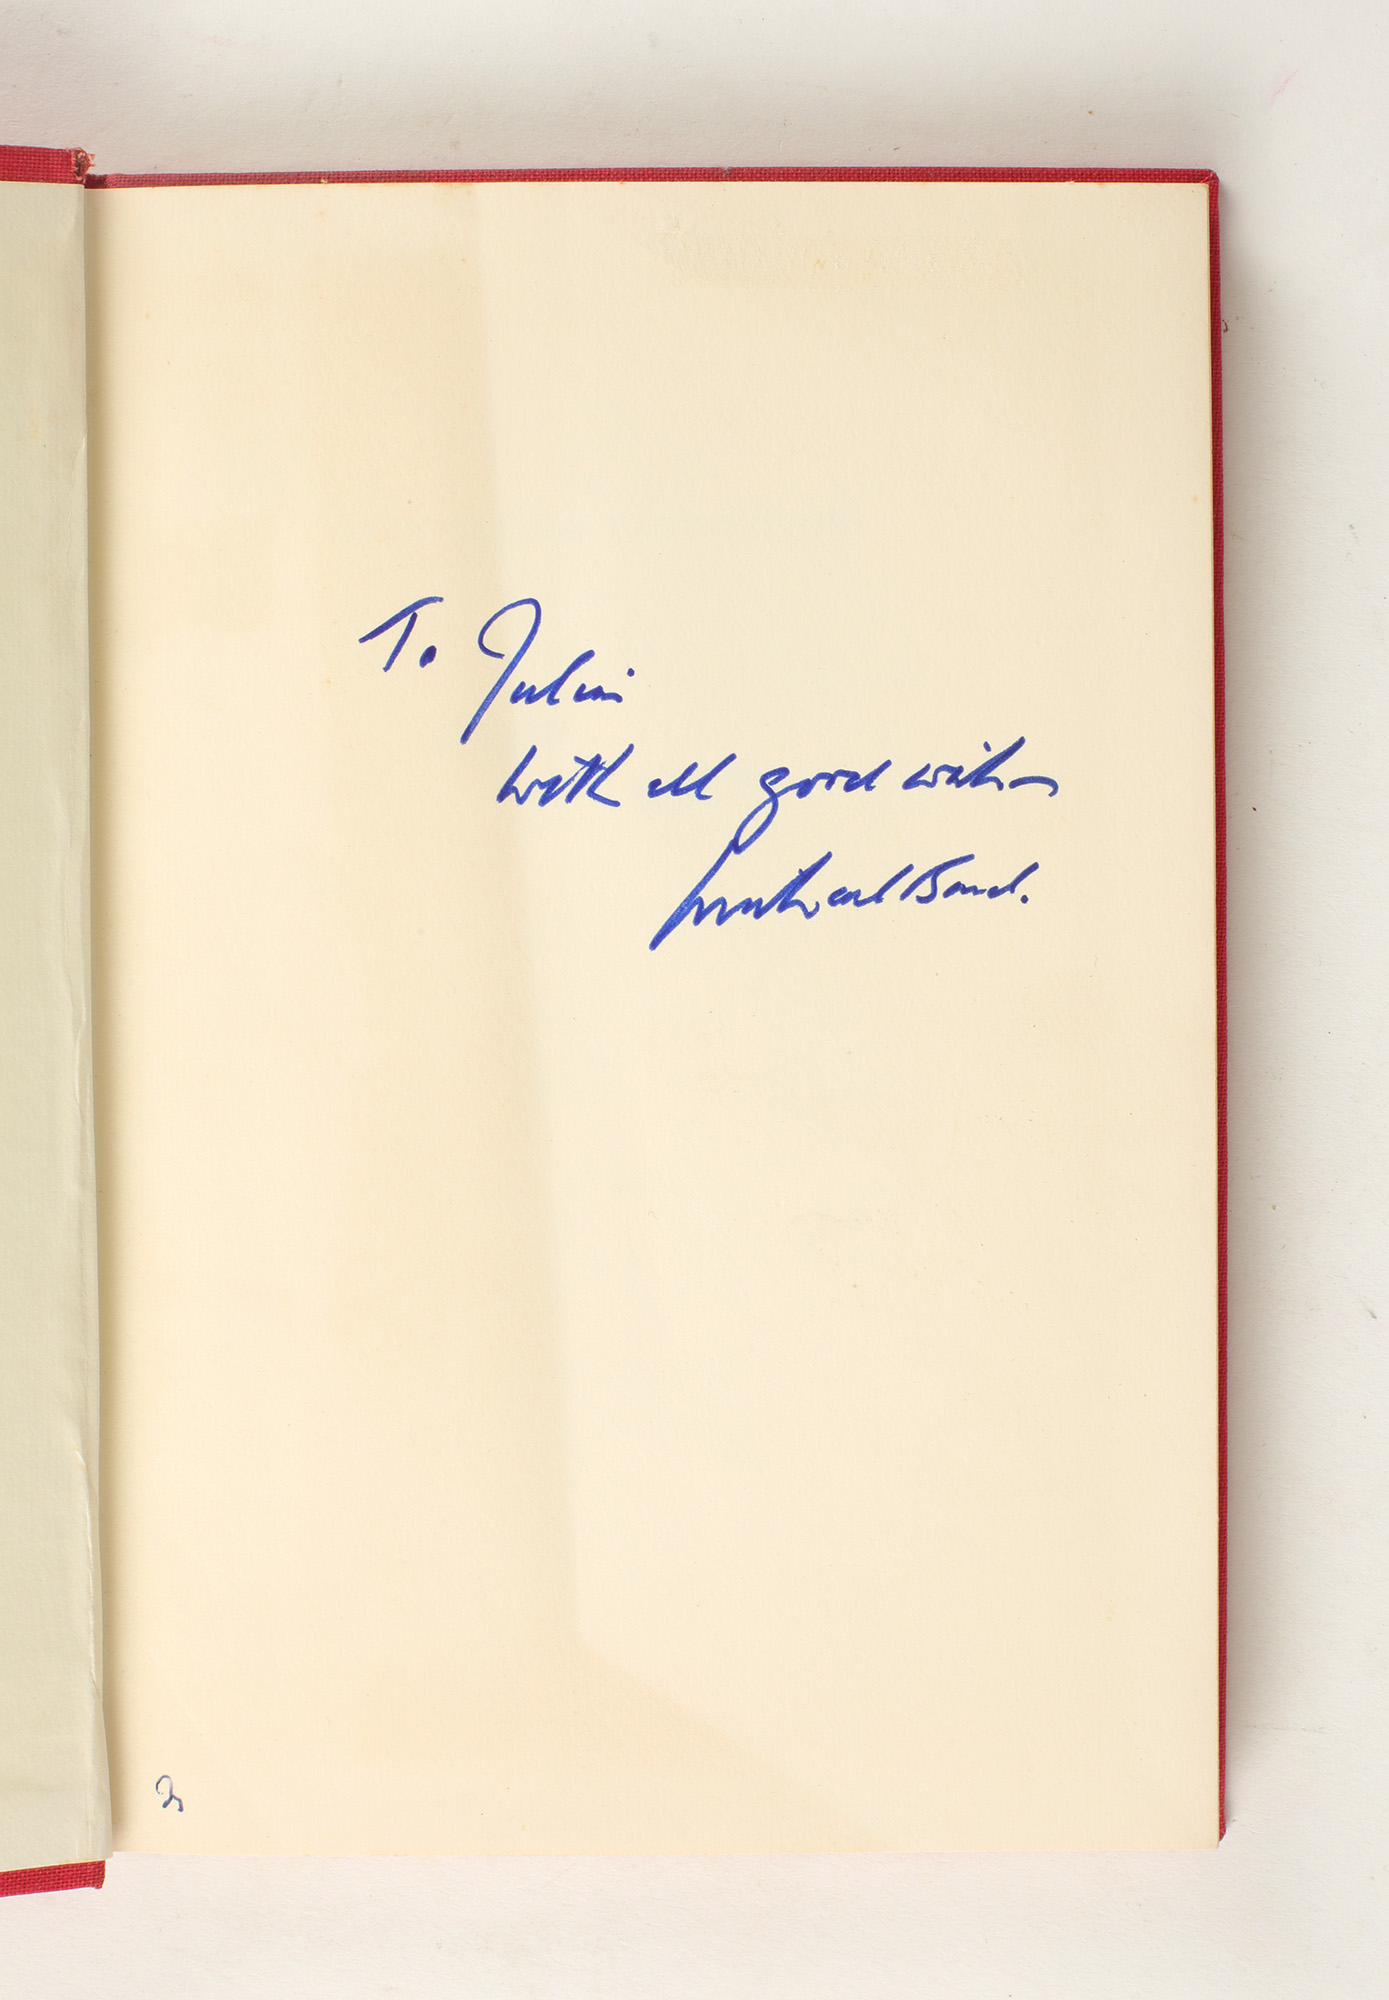 To Julian
with all good wishes
Michael Bond.